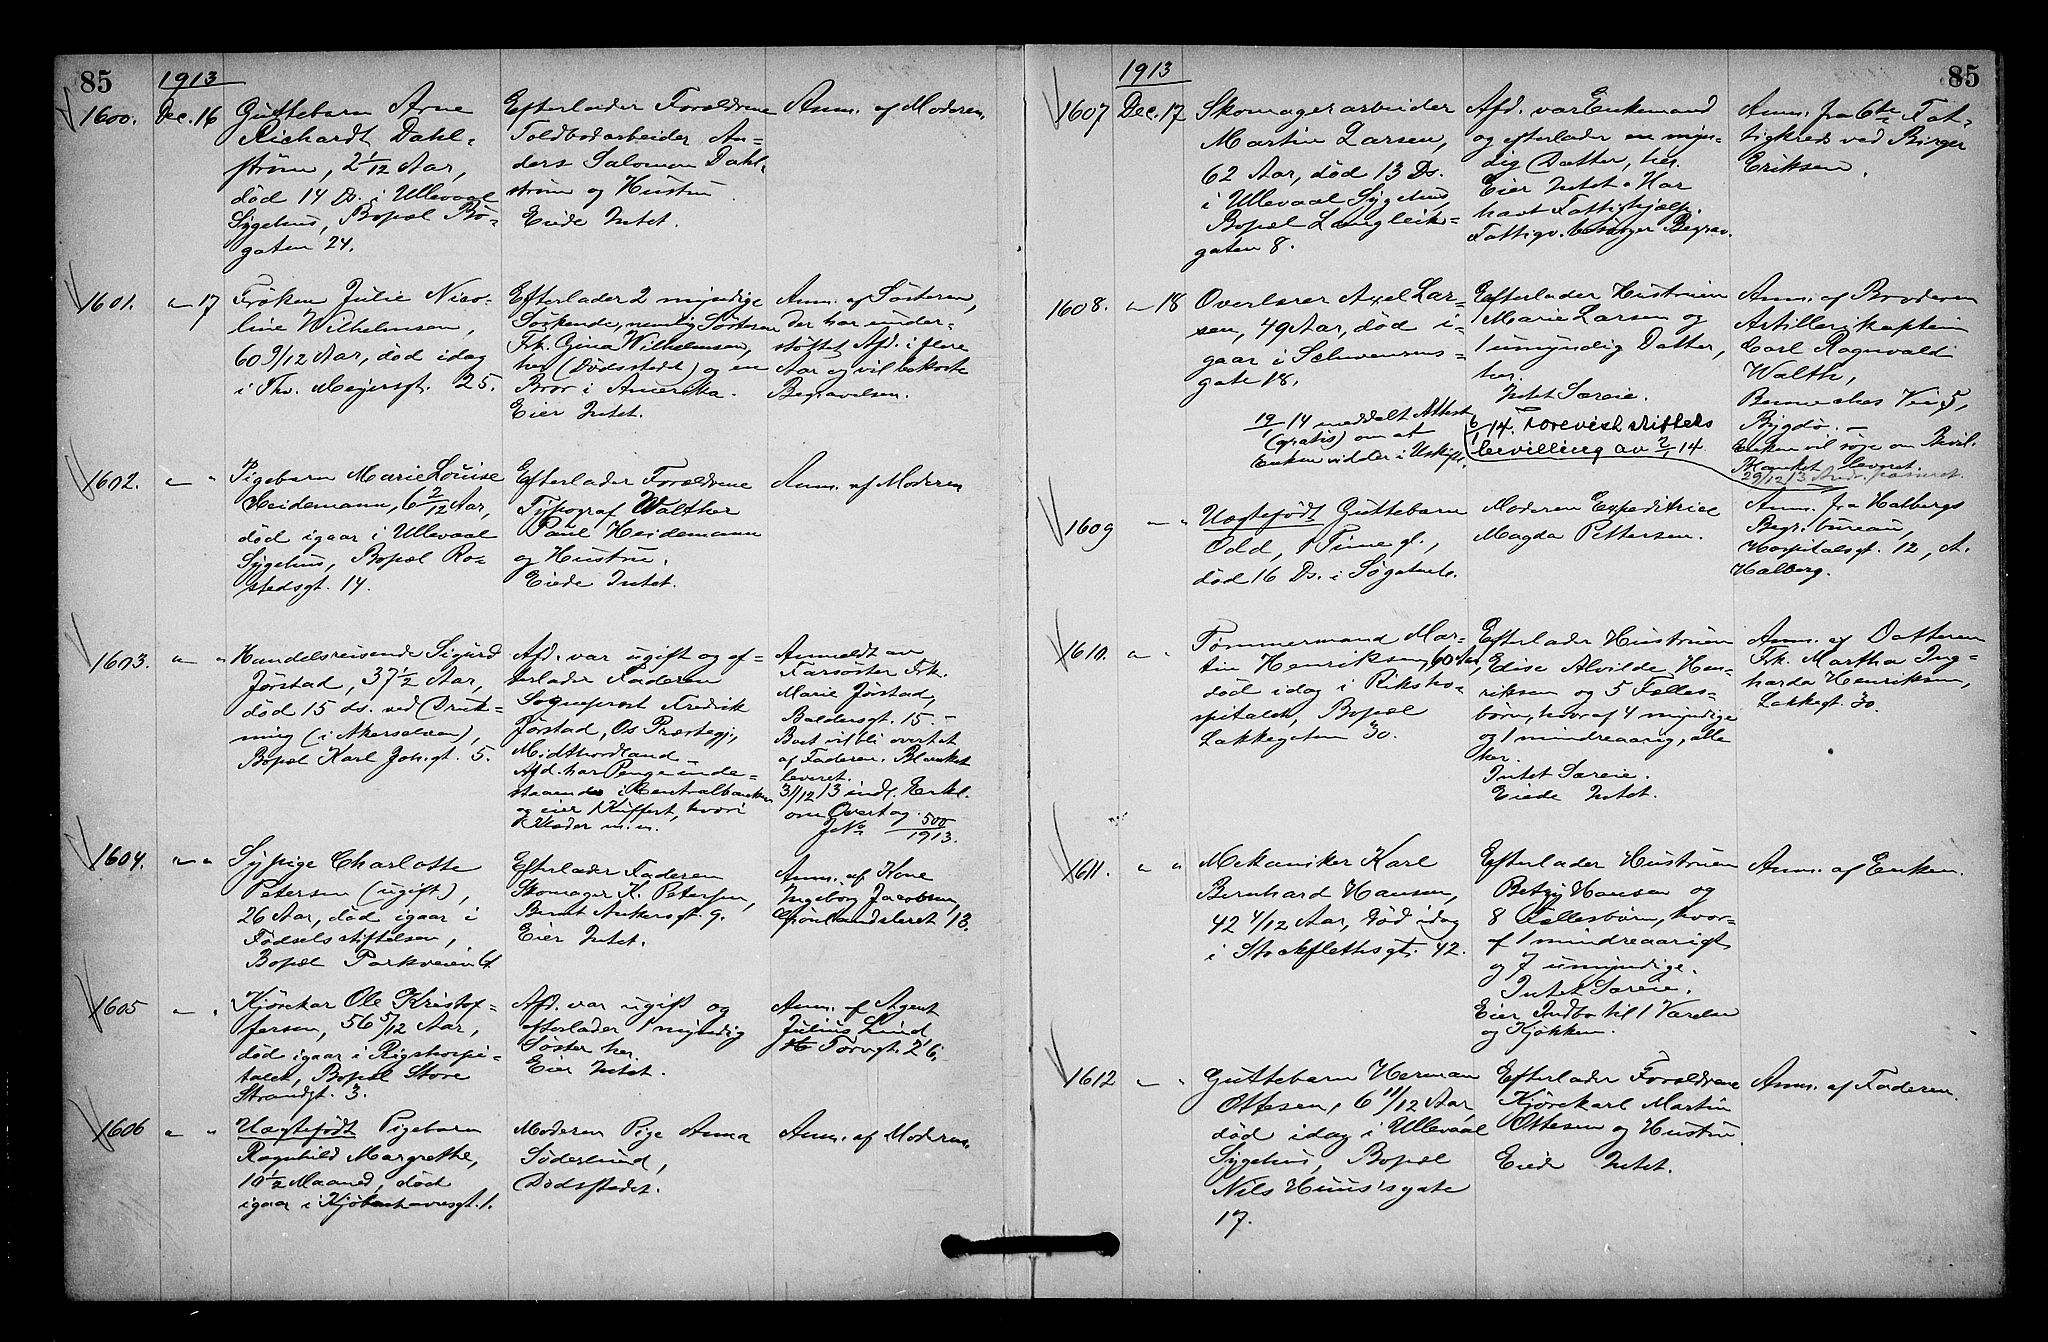 85
1913
1600. Dec. 16
Guttebarn Arne
Richardt Dahl-
strøm, 2 1/12 Aar,
død 14 Ds. i Ullevaal
Sygehus, Bopæl Bø-
gaten 24.
Efterlader Forældrene
Toldbodarbeider An-
ders Salomon Dahl-
strøm og Hustru
Eiede Intet.
Anm. af Moderen.
1601. " 17
Frøken Julie Nico-
line Wilhelmsen,
60 9/12 Aar, død idag
i Thv. Meyersgt. 25.
Efterlader 2 myndige
Søskende, nemlig Søsteren
Frk. Gina Wilhelmsen,
her (Dødsstedet) og en
Bror i Amerika.
Eier Intet.
Anm. af Søsteren,
der har under-
støttet Afd. i flere
Aar og vil bekoste
Begravelsen.
1602. " "
Pigebarn Marie Louise
Heidemann, 6 2/12 Aar,
død igaar i Ullevaal
Sygehus, Bopæl Ro-
stedsgt. 14.
Efterlader Forældrene
Typograf Walther
Paul Heidemann
og Hustru.
Eiede Intet.
Anm. af Moderen
1603. " "
Handelsreisende Sigurd
Jørstad, 37 1/2 Aar,
død 15 ds. ved Druk-
ning (i Akerselven),
Bopæl Karl Johsgt. 5.
Afd. var ugift og ef-
terlader Faderen
Sogneprest Fredrik
Jørstad, Os Præstegj.,
Midthordland
Afd. har Penge inde-
staaende i Centralbanken
og eier 1 Kuffert, hvori
Klæder m. m.
Anmeldt av
Farsøster Frk.
Marie Jørstad,
Baldersgt. 15. –
Boet vil bli overtat
af Faderen. Blanket
leveret.
31/12 13 indl. Erkl.
om Overtag.
J.No 500/1913.
1604. " "
Sypige Charlotte
Petersen (ugift),
26 Aar, død igaar i
Fødselsstiftelsen,
Bopæl Parkveien 64
Efterlader Faderen
Skomager K. Petersen,
Bernt Ankersgt. 9.
Eier Intet.
Anm. af Kone
Ingeborg Jacobsen,
Grønlandsleret 13.
1605 " "
Kjørekar Ole Kristof-
fersen, 56 5/12 Aar,
død igaar i Rigshospi-
talet, Bopæl Store
Strandgt. 3.
Afd. var ugift og
efterlader 1 myndig
Søster her.
Eier Intet.
Anm. af Agent
Julius Lund,
Torvgt. 26.
1606 " "
Uægtefødt Pigebarn
Ragnhild Margrethe,
10 1/2 Maaned, død
igaar i Kjøbenhavnsgt. 1.
Moderen Pige Anna
Söderlund,
Dødsstedet.
Anm. af Moderen.
85
1913
1607 Dec. 17
Skomagerarbeider
Martin Larsen,
62 Aar, død 13 Ds.
i Ullevaal Sygehus,
Bopæl Langleik-
gaten 8.
Afd. var Enkemand
og efterlader en myn-
dig Datter, her.
Eier Intet. Har
havt Fattighjælp.
Fattigv. besørger Begrav.
Anm. fra 6te Fat-
tigkreds ved Birger
Eriksen.
1608. " 18
Overlærer Axel Lar-
sen, 49 Aar, død i-
gaar i Schwensens-
gate 18.
19/1 14 meddelt Attest
(gratis) om at
Enken sidder i Uskifte.
Efterlader Hustruen
Marie Larsen og
1 umyndig Datter,
her.
Intet Særeie.
6/1 14. Forevist skiftets
bevilling av 2/1 14
Anm. af Broderen
Artillerikaptein
Carl Ragnvald
Walth,
Benneches Vei 5,
Bygdø. –
Enken vil søge om Bevil.
Blanket leveret.
29/12 13 Andr. passeret.
1609 " "
Uægtefødt Guttebarn
Odd, 1 Time gl.,
død 16 Ds. i Søgaten 6.
Moderen Expeditrice
Magda Pettersen.
Anm. fra Halbergs
Begr. bureau,
Hospitalsgt. 12, A.
Halberg.
1610. " "
Tømmermand Mar-
tin Henriksen, 60 Aar,
død idag i Riksho-
spitalet, Bopæl
Lakkegaten 30.
Efterlader Hustruen
Edise Alvilde Hen-
riksen og 5 Fælles-
børn, hvoraf 4 myndige
og 1 mindreaarig, alle
her.
Intet Særeie.
Eiede Intet.
Anm. af Datteren
Frk. Martha Ing-
harda Henriksen,
Lakkegt. 30.
1611. " "
Mekaniker Karl
Bernhard Hansen,
42 4/12 Aar, død idag
i Stockflethsgt. 42.
Efterlader Hustruen
Betzy Hansen og
8 Fællesbørn, hvor-
af 1 mindreaarigt
og 7 umyndige.
Intet Særeie.
Eier Indbo til 1 Værelse
og Kjøkken.
Anm. af Enken.
1612 " "
Guttebarn Herman
Ottesen, 6 11/12 Aar,
død idag i Ullevaal
Sygehus, Bopæl
Nils Huus's gate
17.
Efterlader Forældrene
Kjørekarl Martin
Ottesen og Hustru.
Eiede Intet.
Anm. af Faderen.